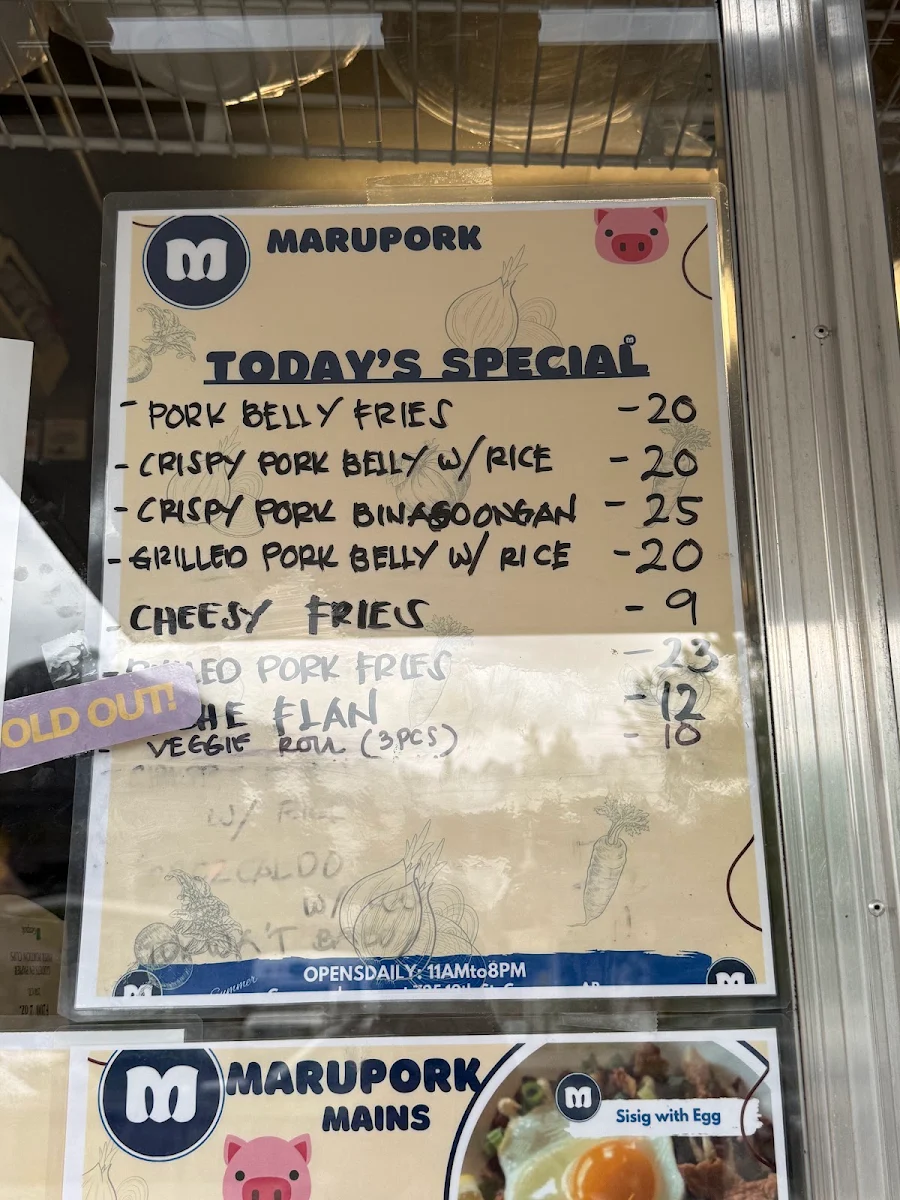 MARUPORK
TODAY'S SPECIAL
- PORK BELLY FRIES - 20
- CRISPY PORK BELLY W/ RICE - 20
- CRISPY PORK BINAGOONGAN - 25
- GRILLED PORK BELLY W/ RICE - 20
- CHEESY FRIES - 9
PORK FRIES - 23
FLAN - 12
- VEGGIE ROLL (3PCS) - 10
OLD OUT!
W/
W/
OPENSDAILY: 11AMto8PM
Summer
MARUPORK
MAINS
Sisig with Egg